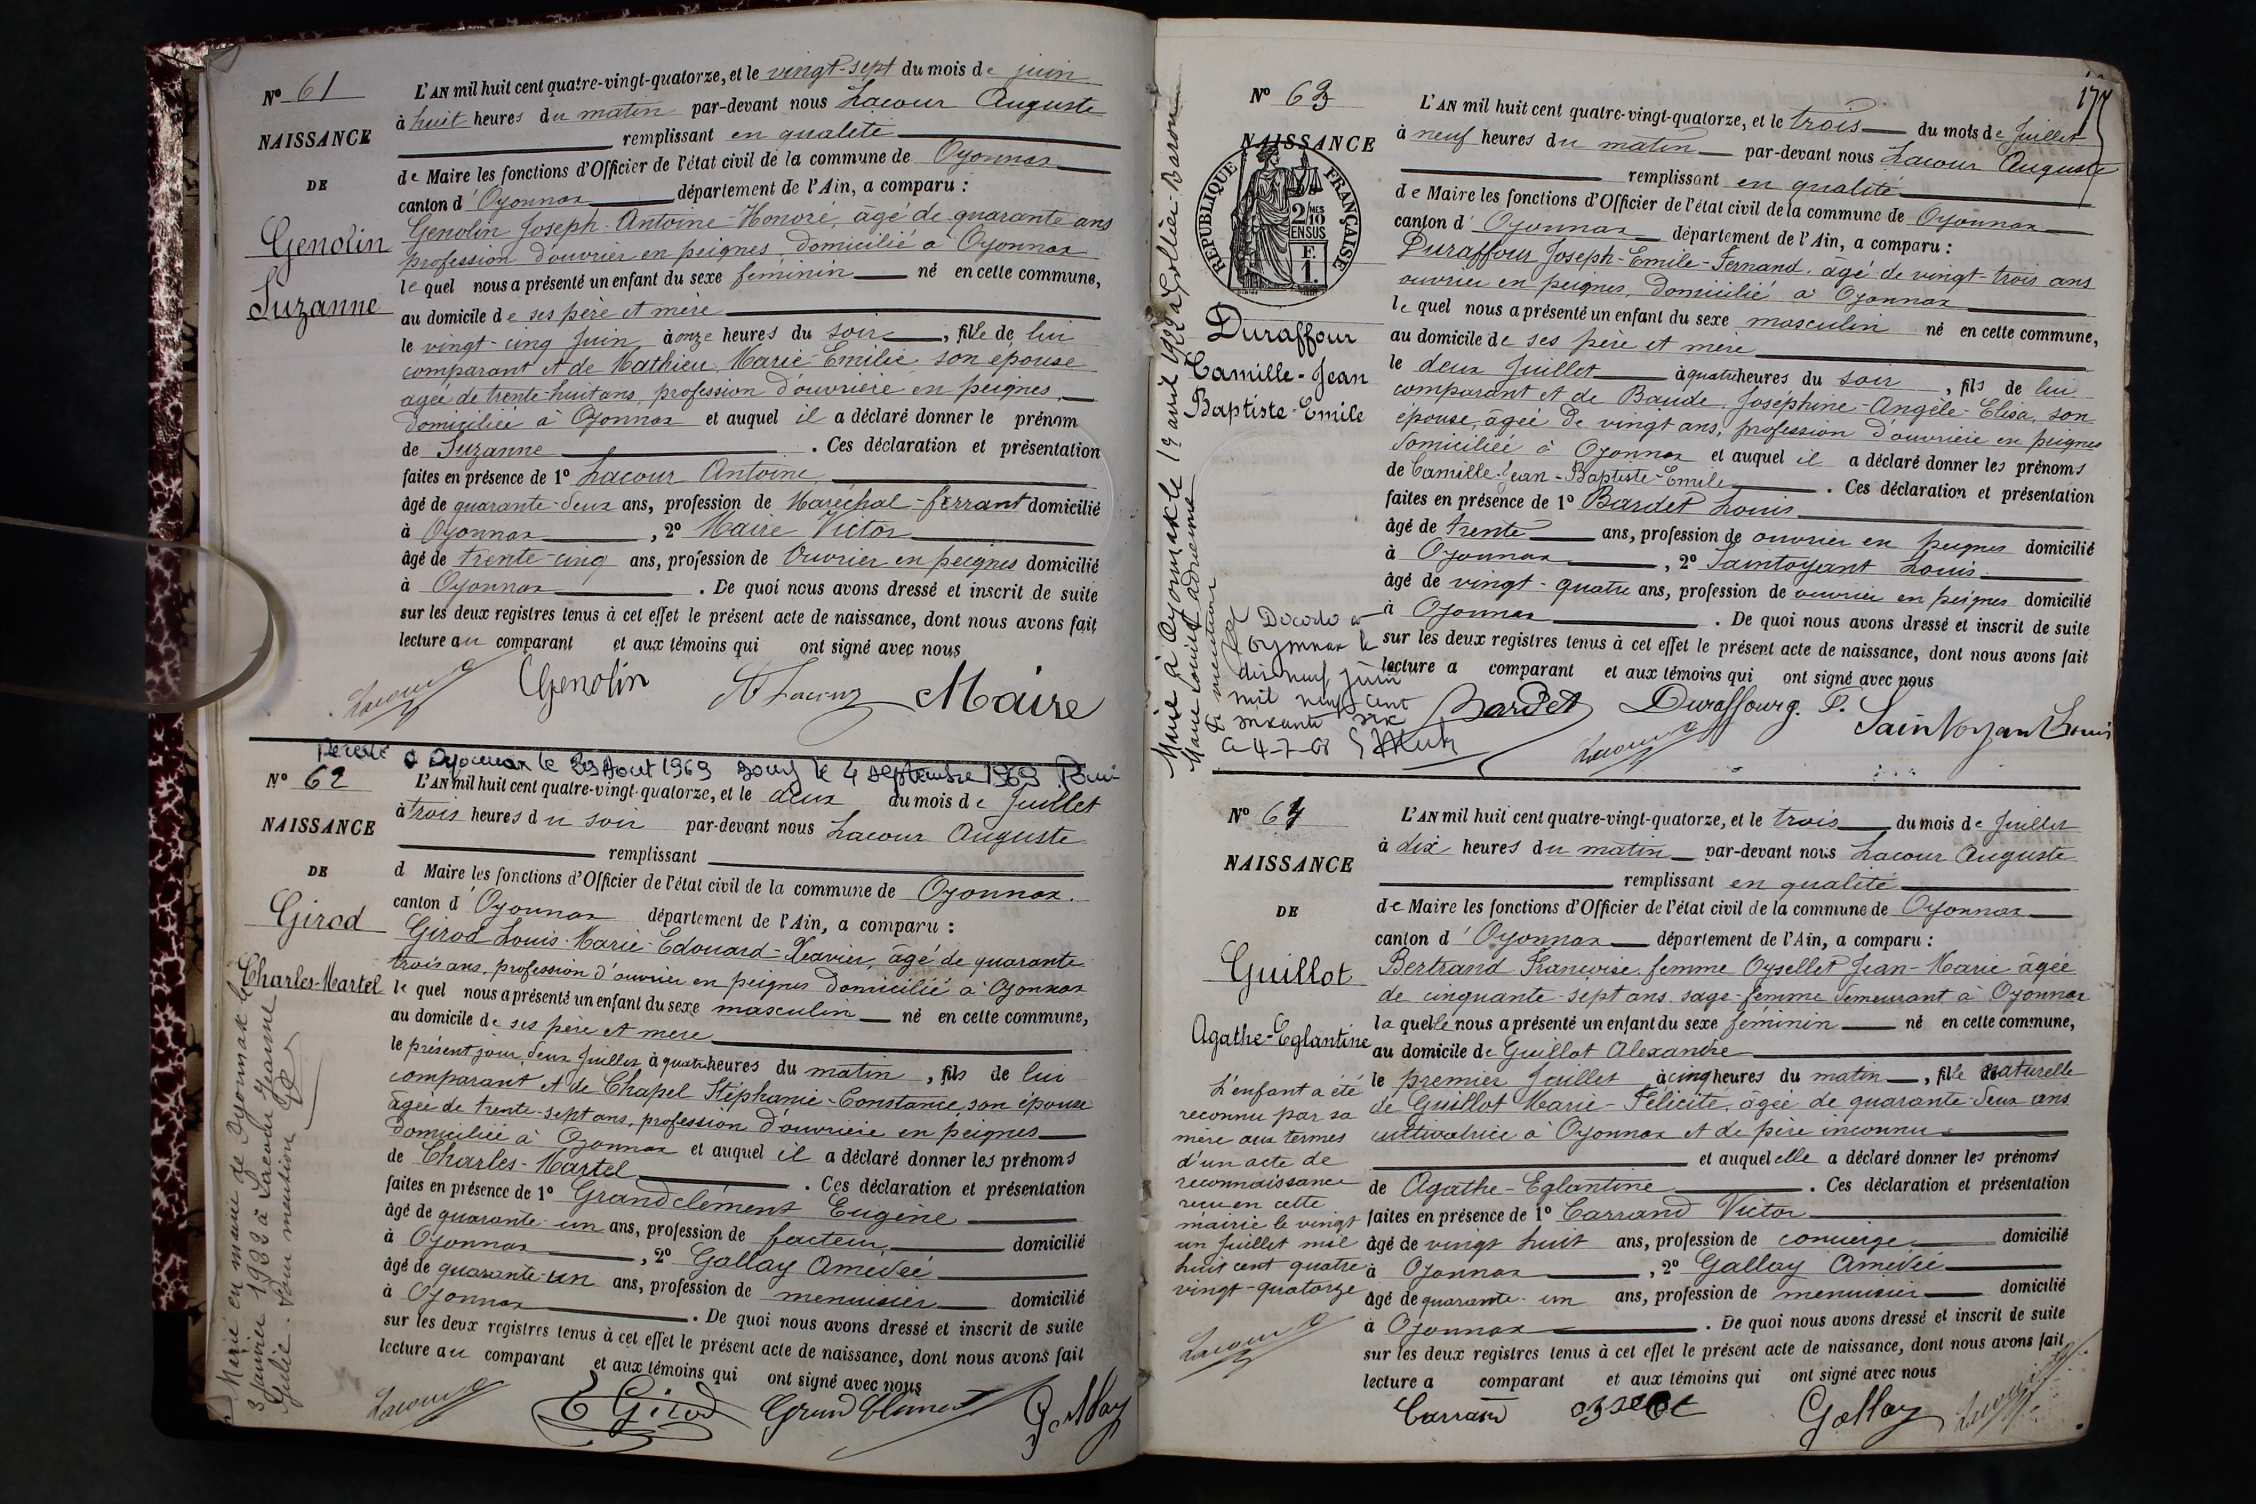 N° 61
NAISSANCE
DE
Genolin
Suzanne
L'AN mil huit cent quatre-vingt-quatorze, et le vingt-sept du mois de juin
à huit heures du matin par-devant nous Lacour Auguste
remplissant en qualité
de Maire les fonctions d'Officier de l'état civil de la commune de Oyonnax
canton d'Oyonnax département de l'Ain, a comparu :
Genolin Joseph-Antoine-Honoré, âgé de quarante ans
profession d'ouvrier en peignes domicilié à Oyonnax
le quel nous a présenté un enfant du sexe féminin né en cette commune,
au domicile de ses père et mère
le vingt-cinq Juin, à onze heures du soir, fille de lui
comparant et de Mathieu, Marie-Emilie son épouse
agée de trente-huit ans, profession d'ouvrière en peignes,
domiciliée à Oyonnax et auquel il a déclaré donner le prénom
de Suzanne . Ces déclaration et présentation
faites en présence de 1° Lacour Antoine,
âgé de quarante-deux ans, profession de Maréchal-ferrant domicilié
à Oyonnax , 2° Maire Victor
âgé de trente-cinq ans, profession de Ouvrier en peignes domicilié
à Oyonnax . De quoi nous avons dressé et inscrit de suite
sur les deux registres tenus à cet effet le présent acte de naissance, dont nous avons fait
lecture au comparant et aux témoins qui ont signé avec nous
Lacour Genolin A Lacour Maire
Décédé à Oyonnax le 29 Aout 1969 le 4 septembre 1969
N° 62
NAISSANCE
DE
Girod
Charles-Martel
L'AN mil huit cent quatre-vingt-quatorze, et le deux du mois de Juillet
à trois heures du soir par-devant nous Lacour Auguste
remplissant
d Maire les fonctions d'Officier de l'état civil de la commune de Oyonnax.
canton d'Oyonnax département de l'Ain, a comparu :
Girod Louis-Marie-Edouard-Xavier, âgé de quarante
trois ans, profession d'ouvrier en peignes domicilié à Oyonnax
le quel nous a présenté un enfant du sexe masculin né en cette commune,
au domicile de ses père et mère
le présent jour, deux Juillet, à quatre heures du matin, fils de lui
comparant et de Chapel Stéphanie-Constance, son épouse
âgée de trente-sept ans, profession d'ouvrière en peignes
domiciliée à Oyonnax et auquel il a déclaré donner les prénoms
de Charles-Martel . Ces déclaration et présentation
faites en présence de 1° Grandclément Eugène
âgé de quarante-un ans, profession de facteur, domicilié
à Oyonnax , 2° Gallay Amédée
âgé de quarante-un ans, profession de menuisier domicilié
à Oyonnax . De quoi nous avons dressé et inscrit de suite
sur les deux registres tenus à cet effet le présent acte de naissance, dont nous avons fait
lecture au comparant et aux témoins qui ont signé avec nous
Lacour E Girod Grandclément Gallay
Marié en mairie de Oyonnax le
3 Janvier 1922 à Lacour Jeanne
Julie. Pour mention
177
N° 63
NAISSANCE
RÉPUBLIQUE FRANÇAISE
2/10 MES
EN SUS
F.
1.
Duraffour
Camille-Jean
Baptiste-Emile
L'AN mil huit cent quatre-vingt-quatorze, et le trois du mois de Juillet
à neuf heures du matin par-devant nous Lacour Auguste
remplissant en qualité
de Maire les fonctions d'Officier de l'état civil de la commune de Oyonnax
canton d'Oyonnax département de l'Ain, a comparu :
Duraffour Joseph-Emile-Fernand, âgé de vingt-trois ans
ouvrier en peignes, domicilié à Oyonnax
le quel nous a présenté un enfant du sexe masculin né en cette commune,
au domicile de ses père et mère
le deux Juillet à quatre heures du soir, fils de lui
comparant et de Baude, Joséphine-Angèle-Elisa, son
épouse, âgée de vingt ans, profession d'ouvrière en peignes
domiciliée à Oyonnax et auquel il a déclaré donner les prénoms
de Camille-Jean-Baptiste-Emile . Ces déclaration et présentation
faites en présence de 1° Bardet Louis
âgé de trente ans, profession de ouvrier en peignes domicilié
à Oyonnax , 2° Saintoyant Louis
âgé de vingt-quatre ans, profession de ouvrier en peignes domicilié
à Oyonnax . De quoi nous avons dressé et inscrit de suite
sur les deux registres tenus à cet effet le présent acte de naissance, dont nous avons fait
lecture a comparant et aux témoins qui ont signé avec nous
Bardet Duraffourg. F. Saintoyant Louis
Lacour
Marié à Oyonnax le 19 avril 1922 à Collier-Baron
Marie Louise
Pr mention
Décédé à
Oyonnax le
dix neuf juin
mil neuf cent
soixante six
N° 64
NAISSANCE
DE
Guillot
Agathe-Eglantine
L'enfant a été
reconnu par sa
mère aux termes
d'un acte de
reconnaissance
reçu en cette
mairie le vingt
un Juillet mil
huit cent quatre
vingt-quatorze
Lacour
L'AN mil huit cent quatre-vingt-quatorze, et le trois du mois de Juillet
à dix heures du matin par-devant nous Lacour Auguste
remplissant en qualité
de Maire les fonctions d'Officier de l'état civil de la commune de Oyonnax
canton d'Oyonnax département de l'Ain, a comparu :
Bertrand Françoise, femme Oysellet Jean-Marie âgée
de cinquante-sept ans sage-femme demeurant à Oyonnax
la quelle nous a présenté un enfant du sexe féminin né en cette commune,
au domicile de Guillot Alexandre
le premier Juillet à cinq heures du matin, fille naturelle
de Guillot Marie-Félicité, âgée de quarante-deux ans
cultivatrice à Oyonnax et de père inconnu
et auquel elle a déclaré donner les prénoms
de Agathe-Eglantine . Ces déclaration et présentation
faites en présence de 1° Carrand Victor
âgé de vingt huit ans, profession de concierge domicilié
à Oyonnax , 2° Gallay Amédée
âgé de quarante-un ans, profession de menuisier domicilié
à Oyonnax . De quoi nous avons dressé et inscrit de suite
sur les deux registres tenus à cet effet le présent acte de naissance, dont nous avons fait
lecture a comparant et aux témoins qui ont signé avec nous
Carrand Gallay Lacour